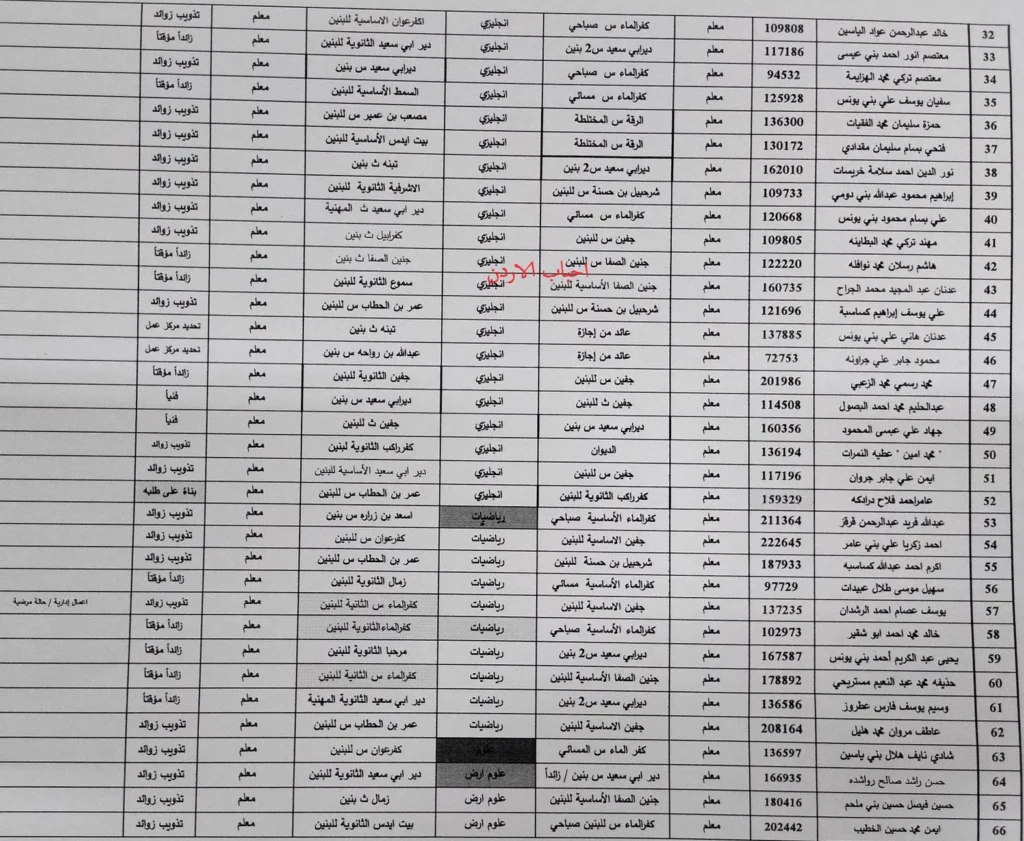 32 خالد عبدالرحمن عواد الياسين 109808 معلم كفرالماء س صباحي انجليزي اكفرعوان الاساسية للبنين معلم تذويب زوائد
33 معتصم انور احمد بني عيسى 117186 معلم ديرابي سعيد س2 بنين انجليزي دير ابي سعيد الثانوية للبنين معلم زائداً مؤقتاً
34 معتصم تركي محمد الهزايمة 94532 معلم كفرالماء س صباحي انجليزي ديرابي سعيد س بنين معلم تذويب زوائد
35 سفيان يوسف علي بني يونس 125928 معلم كفرالماء س مسائي انجليزي السمط الأساسية للبنين معلم زائداً مؤقتاً
36 حمزة سليمان محمد الفقيات 136300 معلم الرقة س المختلطة انجليزي مصعب بن عمير س للبنين معلم تذويب زوائد
37 فتحي بسام سليمان مقدادي 130172 معلم الرقة س المختلطة انجليزي بيت ايدس الأساسية للبنين معلم تذويب زوائد
38 نور الدين احمد سلامة خريسات 162010 معلم ديرابي سعيد س2 بنين انجليزي تبنه ث بنين معلم تذويب زوائد
39 إبراهيم محمود عبدالله بني دومي 109733 معلم شرحبيل بن حسنة س للبنين انجليزي الاشرفية الثانوية للبنين معلم تذويب زوائد
40 علي بسام محمود بني يونس 120668 معلم كفرالماء س مسائي انجليزي دير ابي سعيد ث المهنية معلم تذويب زوائد
41 مهند تركي محمد البطاينه 109805 معلم جفين س للبنين انجليزي كفرابيل ث بنين معلم تذويب زوائد
42 هاشم رسلان محمد نوافله 122220 معلم جنين الصفا س للبنين انجليزي جنين الصفا ث بنين معلم زائداً مؤقتاً
احباب الاردن
43 عدنان عبد المجيد محمد الجراح 160735 معلم جنين الصفا الأساسية للبنين انجليزي سموع الثانوية للبنين معلم زائداً مؤقتاً
44 علي يوسف إبراهيم كساسبة 121696 معلم شرحبيل بن حسنة س للبنين انجليزي عمر بن الحطاب س للبنين معلم تذويب زوائد
45 عدنان هاني علي بني يونس 137885 معلم عائد من إجازة انجليزي تبنه ث بنين معلم تحديد مركز عمل
46 محمود جابر علي جراونه 72753 معلم عائد من إجازة انجليزي عبدالله بن رواحه س بنين معلم تحديد مركز عمل
47 محمد رسمي محمد الزعبي 201986 معلم جفين س للبنين انجليزي جفين الثانوية للبنين معلم زائداً مؤقتاً
48 عبدالحليم محمد احمد البصول 114508 معلم جفين ث للبنين انجليزي ديرابي سعيد س بنين معلم فنياً
49 جهاد علي عيسى المحمود 160356 معلم ديرابي سعيد س بنين انجليزي جفين ث للبنين معلم فنياً
50 " محمد امين " عطيه النمرات 136194 معلم الديوان انجليزي كفرراكب الثانوية لبنين معلم تذويب زوائد
51 ايمن علي جابر جروان 117196 معلم جفين س للبنين انجليزي دير ابي سعيد الأساسية للبنين معلم تذويب زوائد
52 عامراحمد فلاح درادكه 159329 معلم كفرراكب الثانوية للبنين انجليزي عمر بن الحطاب س للبنين معلم بناءً على طلبه
53 عبدالله فريد عبدالرحمن قرقز 211364 معلم كفرالماء الأساسية صباحي رياضيات اسعد بن زراره س بنين معلم تذويب زوائد
54 احمد زكريا علي بني عامر 222645 معلم جفين الاساسية للبنين رياضيات كفرعوان س للبنين معلم تذويب زوائد
55 اكرم احمد عبدالله كساسبه 187933 معلم شرحبيل بن حسنة للبنين رياضيات عمر بن الحطاب س للبنين معلم تذويب زوائد
56 سهيل موسى طلال عبيدات 97729 معلم كفرالماء الأساسية مسائي رياضيات زمال الثانوية للبنين معلم زائداً مؤقتاً
57 يوسف عصام احمد الرشدان 137235 معلم جفين الاساسية للبنين رياضيات كفرالماء س الثانية للبنين معلم تذويب زوائد اعمال إدارية / حالة مرضية
58 خالد محمد احمد ابو شقير 102973 معلم كفرالماء الأساسية صباحي رياضيات كفرالماءالثانوية للبنين معلم زائداً مؤقتاً
59 يحيى عبد الكريم أحمد بني يونس 167587 معلم ديرابي سعيد س2 بنين رياضيات مرحبا الثانوية للبنين معلم زائداً مؤقتاً
60 حذيفه محمد عبد النعيم مستريحي 178892 معلم جنين الصفا الأساسية للبنين رياضيات كفرالماء س الثانية للبنين معلم تذويب زوائد
61 وسيم يوسف فارس عطروز 136586 معلم ديرابي سعيد س2 بنين رياضيات دير ابي سعيد الثانوية المهنية معلم زائداً مؤقتاً
62 عاطف مروان محمد هليل 208164 معلم جفين الاساسية للبنين رياضيات عمر بن الحطاب س للبنين معلم تذويب زوائد
63 شادي نايف هلال بني ياسين 136597 معلم كفر الماء س المسائي علوم كفرعوان س للبنين معلم تذويب زوائد
64 حسن راشد صالح رواشده 166935 معلم دير ابي سعيد س بنين / زائداً علوم ارض دير ابي سعيد الثانوية للبنين معلم تذويب زوائد
65 حسين فيصل حسين بني ملحم 180416 معلم جنين الصفا الأساسية للبنين علوم ارض زمال ث بنين معلم تذويب زوائد
66 ايمن محمد حسين الخطيب 202442 معلم كفرالماء س للبنين صباحي علوم ارض بيت ايدس الثانوية للبنين معلم تذويب زوائد